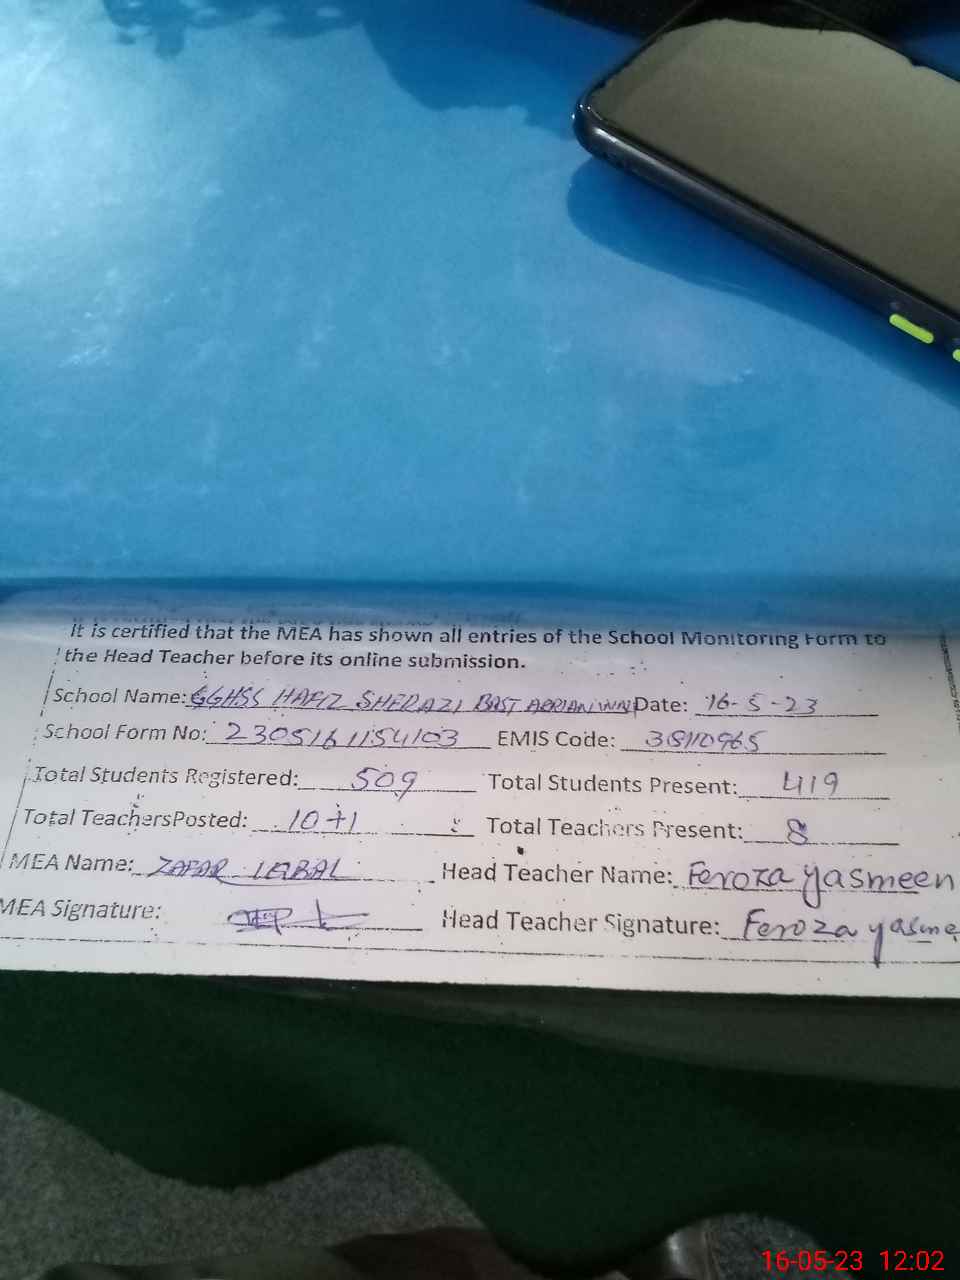 It is certified that the MEA has shown all entries of the School Monitoring Form to
the Head Teacher before its online submission.
School Name: GGHSS HAFIZ SHERAZI BAST Date: 16-5-23
School Form No: 2305161154103 EMIS Code: 38110965
Total Students Registered: 509 Total Students Present: 419
Total TeachersPosted: 10+1 Total Teachers Present: 8
MEA Name: ZAFAR IQBAL Head Teacher Name: Feroza Yasmeen
MEA Signature: Head Teacher Signature: Feroza yasme
16-05-23 12:02